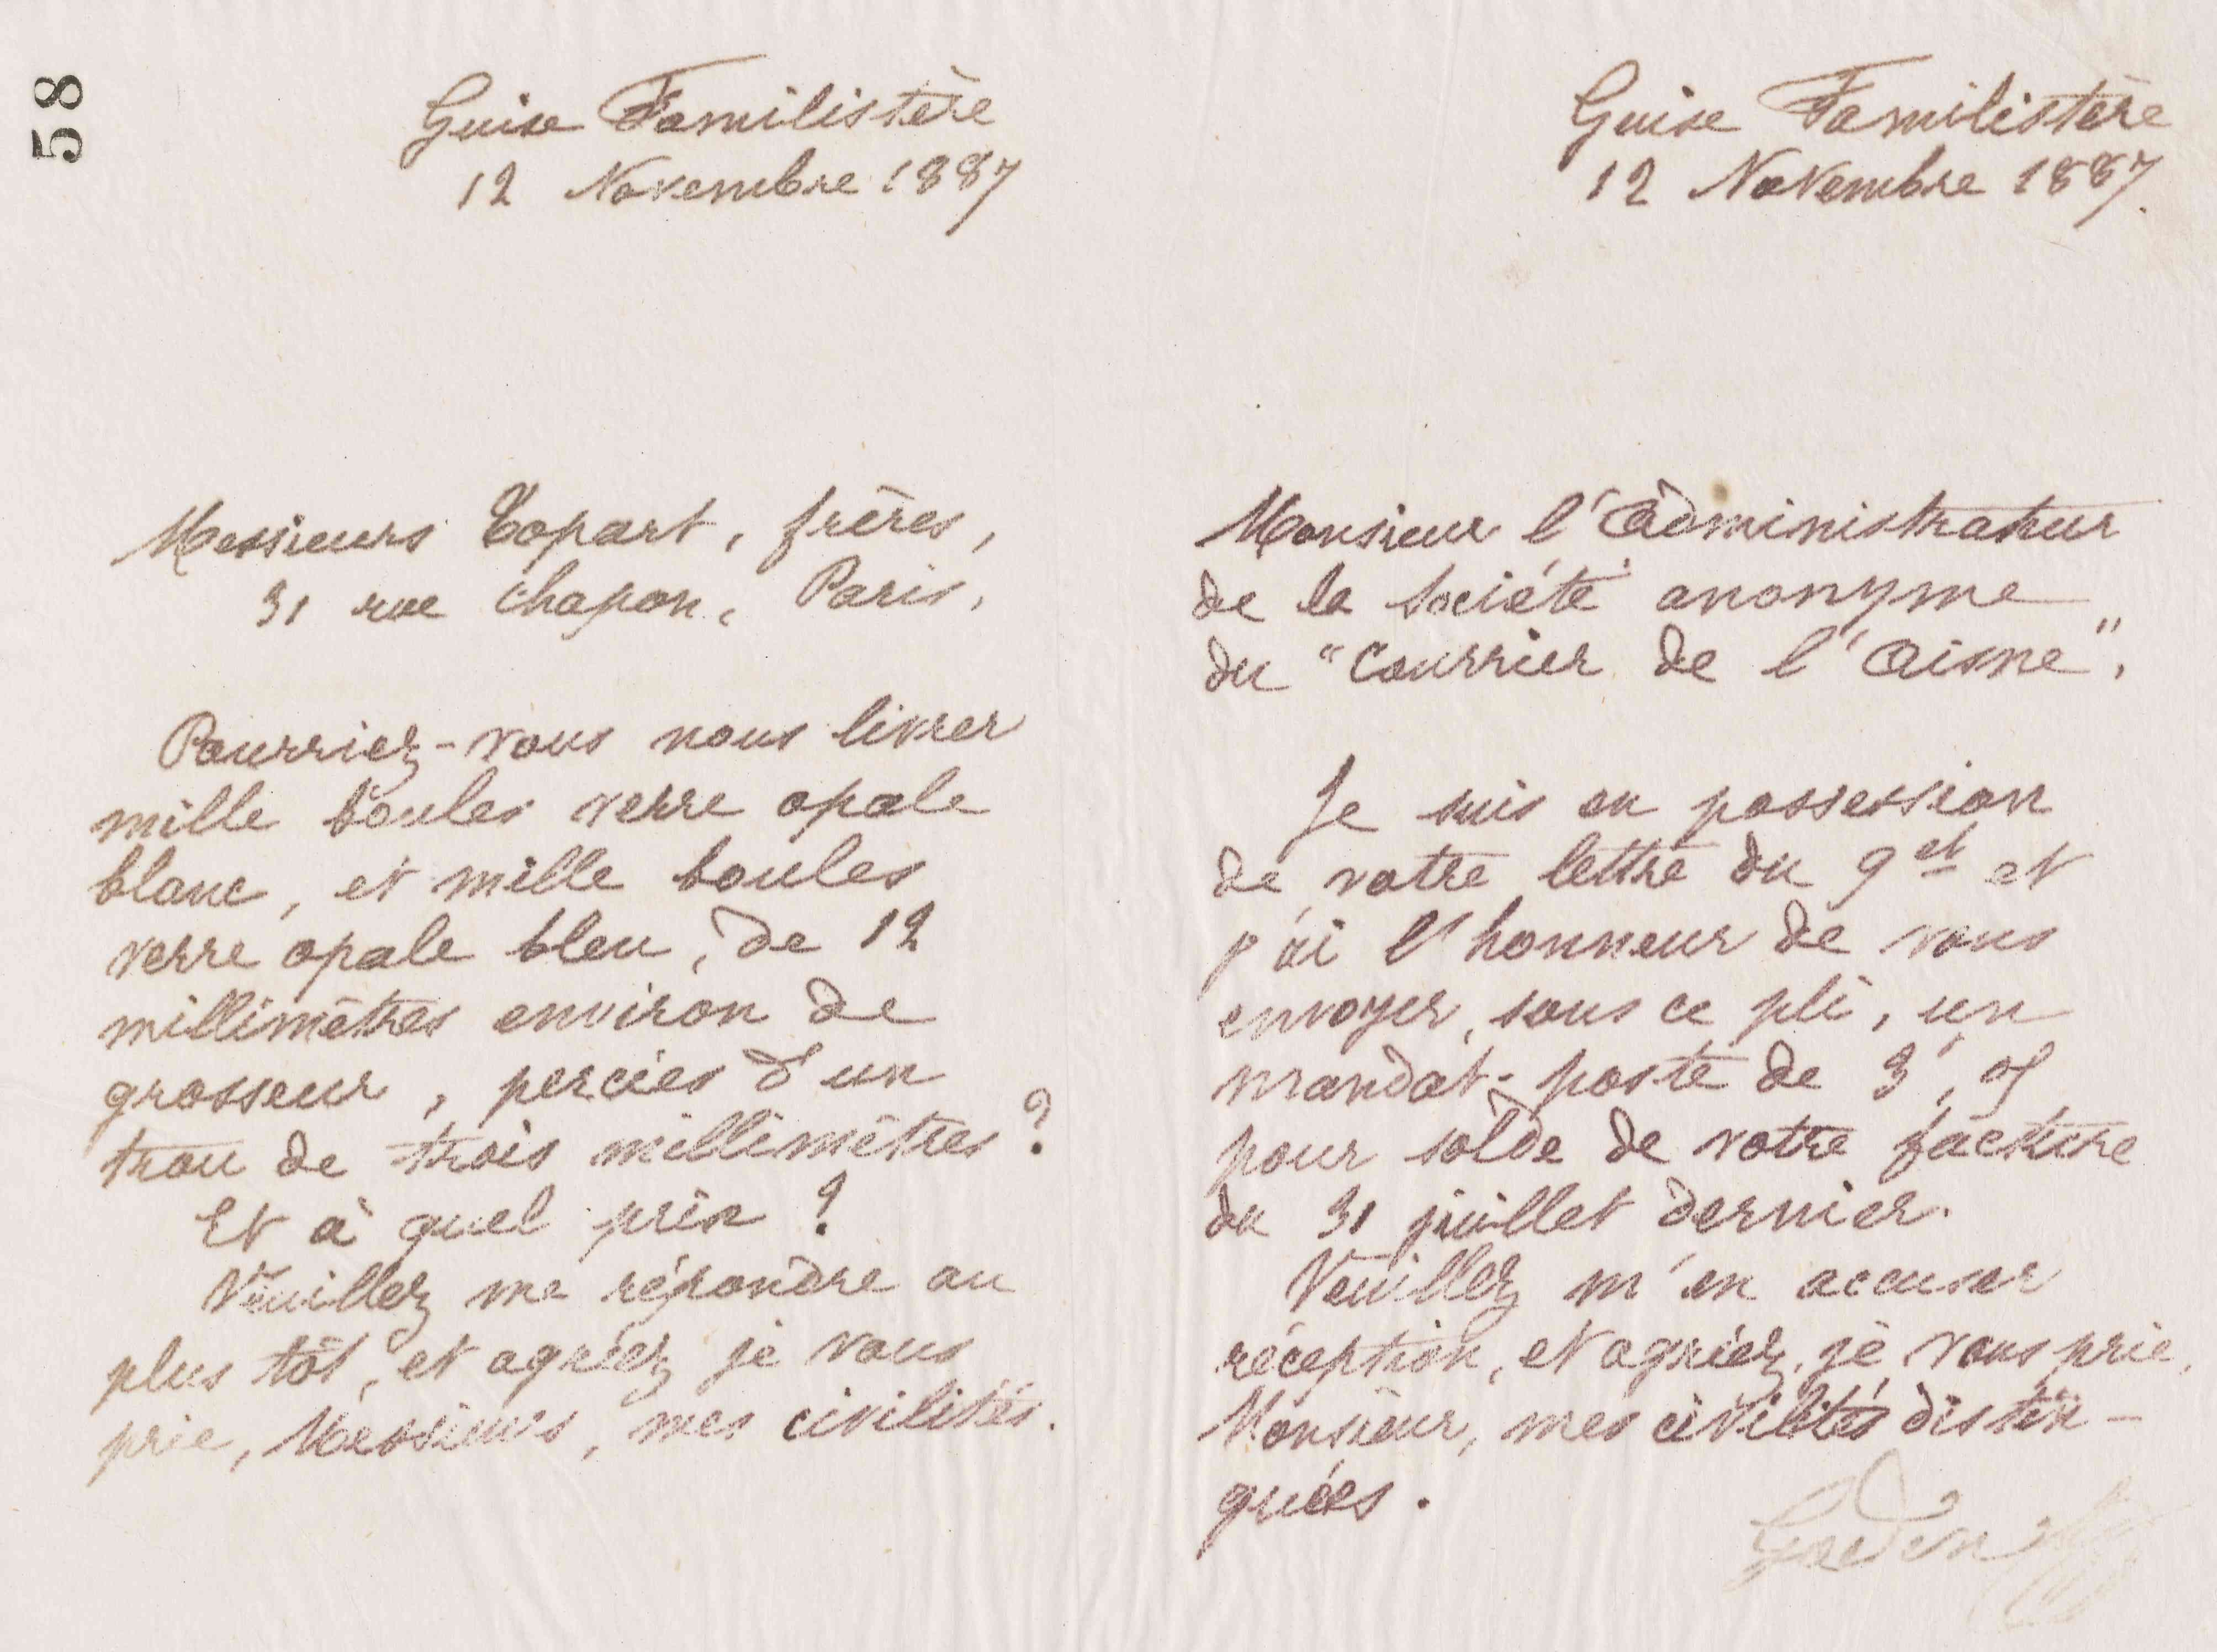 58
Guise Familistère
12 Novembre 1887
Messieurs Topart, frères,
31 rue Chapon, Paris,
Pourriez-vous nous livrer
mille boules verre opale
blanc, et mille boules
verre opale bleu, de 12
millimètres environ de
grosseur, percées d'un
trou de trois millimètres ?
Et à quel prix ?
Veuillez me répondre au
plus tôt, et agréez, je vous
prie, Messieurs, mes civilités.
Guise Familistère
12 Novembre 1887.
Monsieur l'Administrateur
de la Société anonyme
du "Courrier de l'Aisne",
Je suis en possession
de votre lettre du 9 et
j'ai l'honneur de vous
envoyer, sous ce pli, un
mandat-poste de
pour solde de votre facture
du 31 juillet dernier.
Veuillez m'en accuser
réception, et agréez, je vous prie,
Monsieur, mes civilités distin-
guées.
Godin